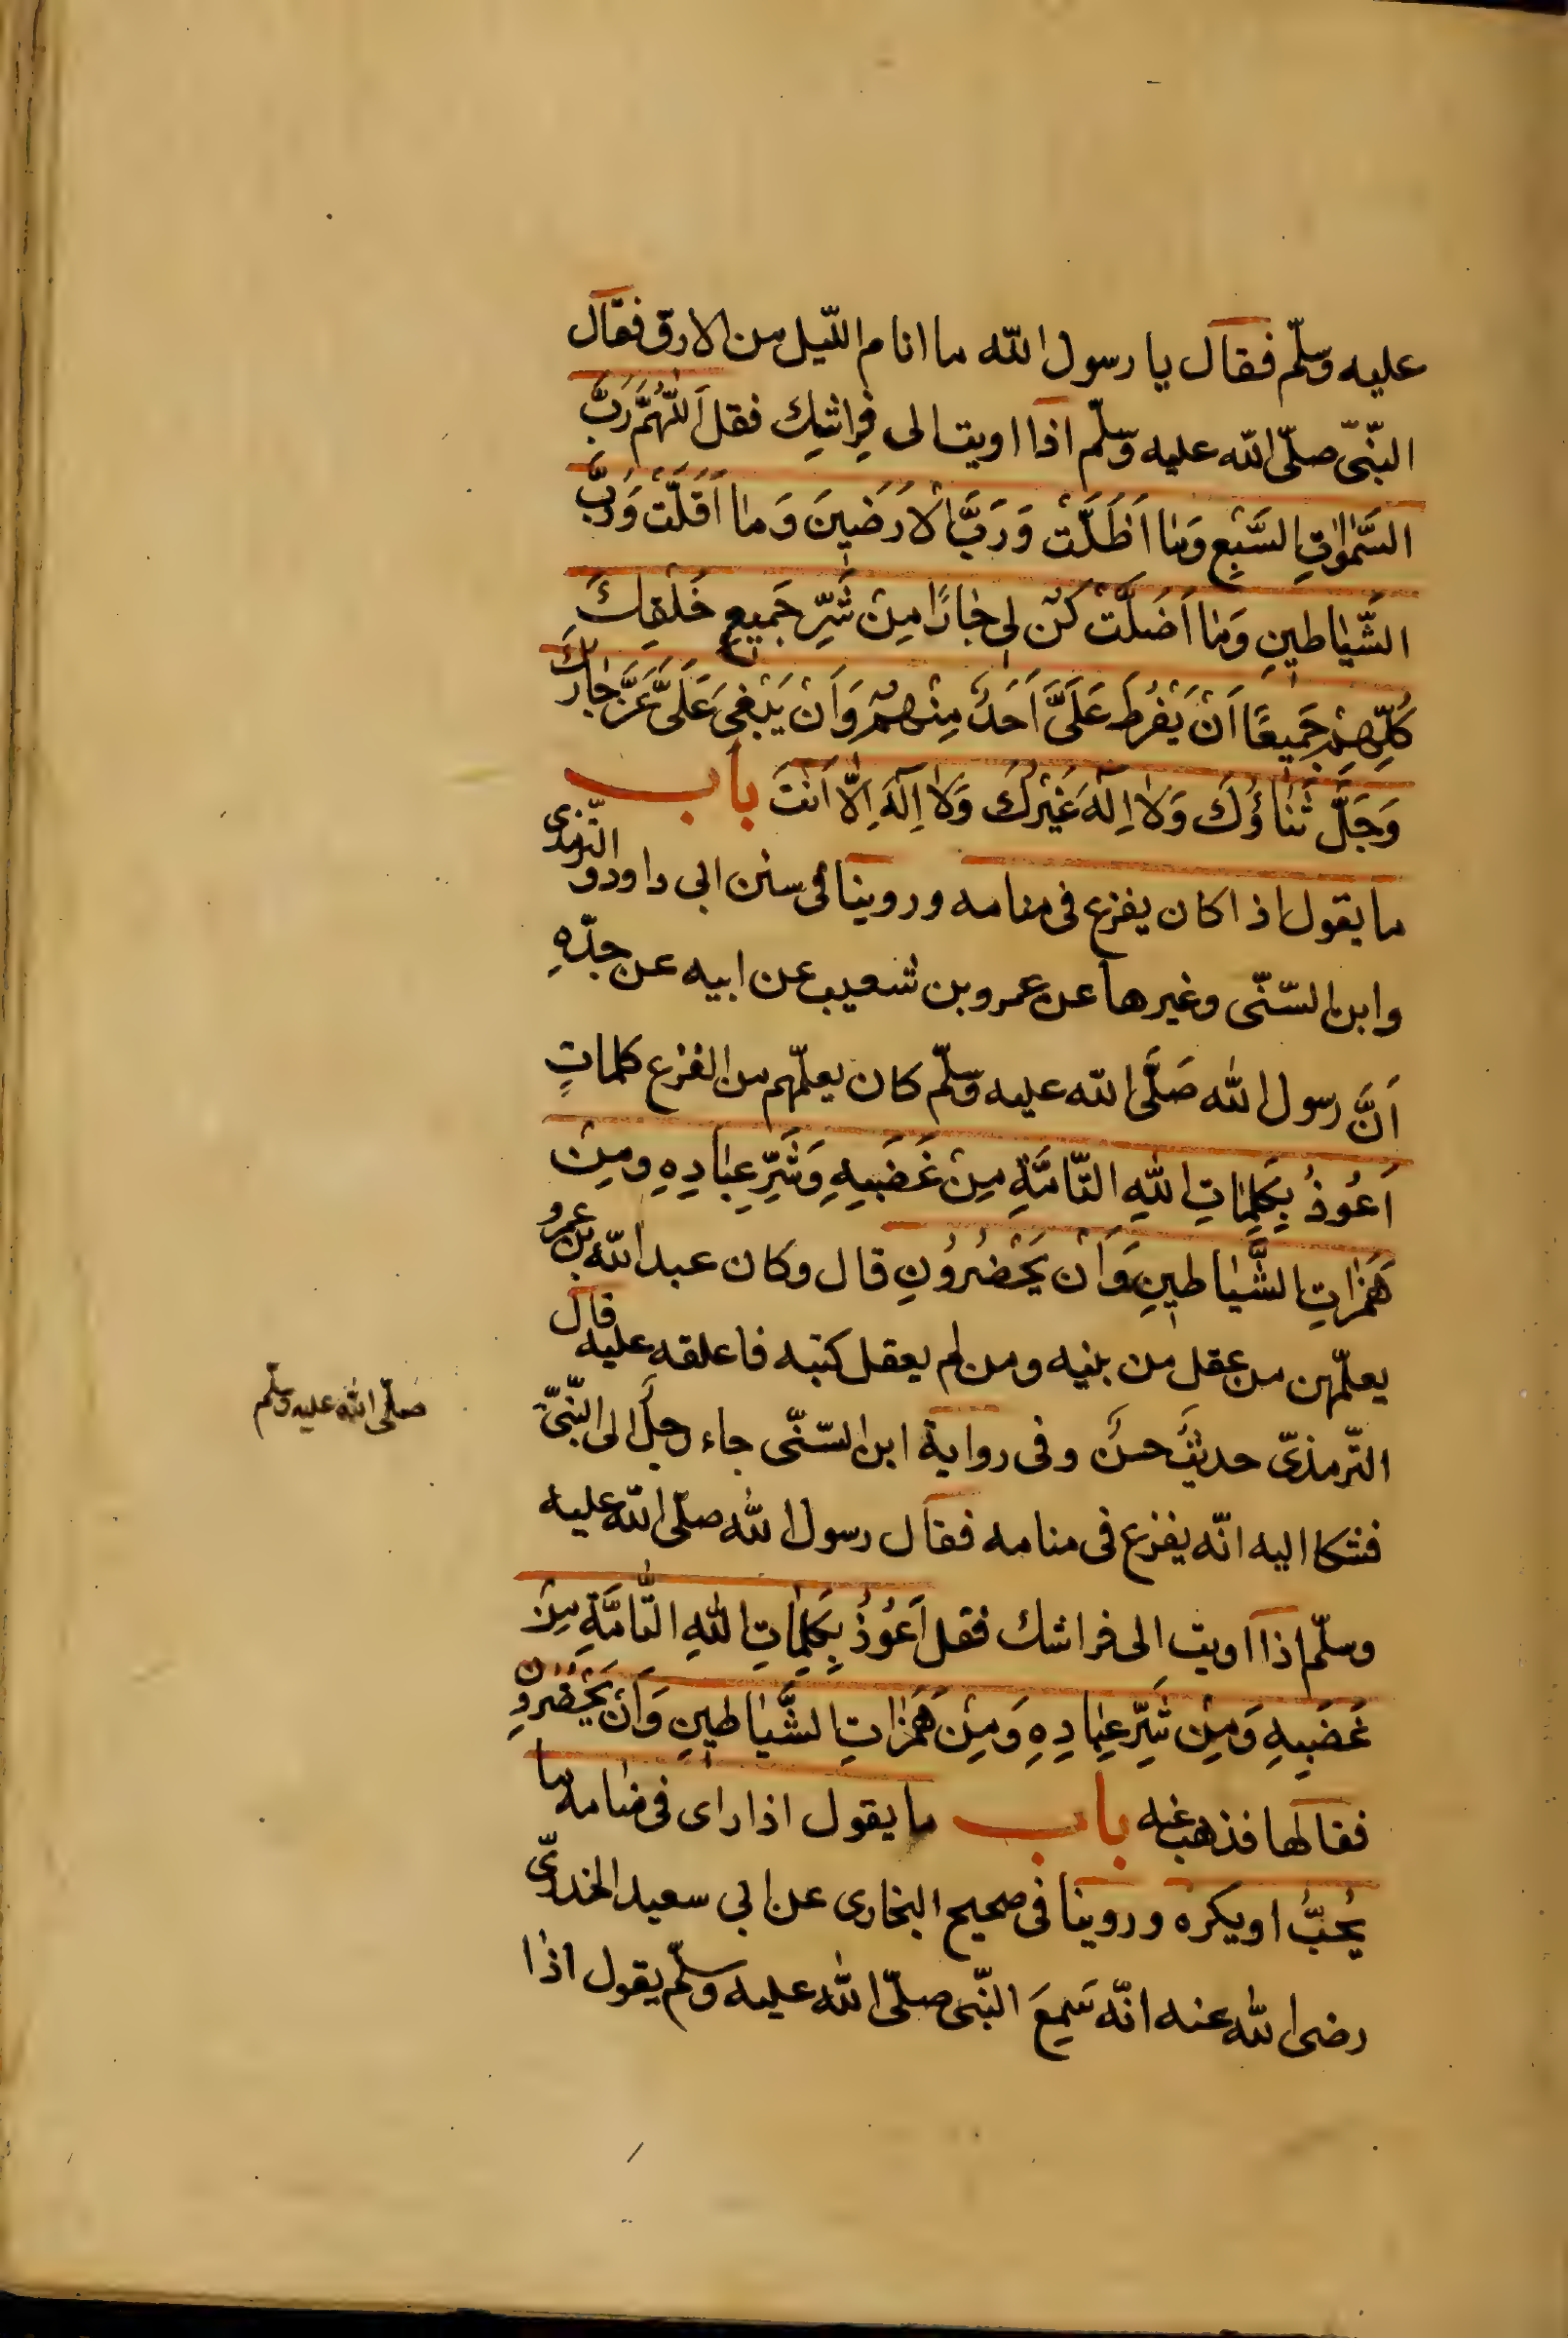 عليه وسلّم فقال يا رسول الله ما انام اللّيل من الارق فقال
النّبىّ صلّى الله عليه وسلّم اذا اويت الى فِراشِك فقل اَللّٰهُمَّ رَبَّ
السَّمٰواتِ السَّبْعِ وَمٰا اَظَلَّتْ وَرَبَّ الْاَرَضينَ وَمٰا اَقَلَّتْ وَرَبَّ
الشَّيٰاطينِ وَمٰا اَضَلَّتْ كُنْ لى جٰارًا مِنْ شَرِّ جَميعِ خَلْقِكَ
كُلِّهِمْ جَميعًا اَنْ يَفْرُطَ عَلَىَّ اَحَدٌ مِنْهُمْ وَاَنْ يَبْغىَ عَلَىَّ عَزَّ جٰارُكَ
وَجَلَّ ثَنٰاؤُكَ وَلٰا اِلٰهَ غَيْرُكَ وَلٰا اِلٰهَ اِلّٰا اَنْتَ باب
ما يقول اذا كان يفزع فى منامه وروينا فى سنن ابى داود والتّرمذى
وابن السّنّى وغيرها عن عمرو بن شعيب عن ابيه عن جدّهِ
اَنَّ رسول الله صَلَّى الله عليه وسلّم كان يعلّمهم من الفزع كلماتٍ
اَعُوذُ بِكَلِمٰاتِ اللهِ التّٰامَّةِ مِنْ غَضَبِهِ وَشَرِّ عِبٰادِهِ ومِنْ
هَمَزٰاتِ الشَّيٰاطينِ وَاَنْ يَحْضُرُونِ قال وكان عبد الله بن عمرو
يعلّمهن من عقل من بنيه ومن لم يعقل كتبه فاعلقه عليه قال
التّرمذىّ حديثٌ حسنٌ وفى رواية ابن السّنّى جاء رجلٌ الى النّبىّ
صلّى الله عليه وسلّم
فشكا اليه انّه يفزع فى منامه فقال رسول الله صلّى الله عليه
وسلّم اذا اويت الى فراشك فقل اَعُوذُ بِكَلِمٰاتِ اللهِ التّٰامَّةِ مِنْ
غَضَبِهِ وَمِنْ شَرِّ عِبٰادِهِ وَمِنْ هَمَزٰاتِ الشَّيٰاطينِ وَاَنْ يَحْضُرُونِ
فقالها فذهب عنه باب ما يقول اذا راى فى منامه ما
يُحبُّ او يكره وروينا فى صحيح البخارى عن ابى سعيد الخدرىّ
رضى الله عنه انّه سَمِعَ النّبى صلّى الله عليه وسلّم يقول اذا